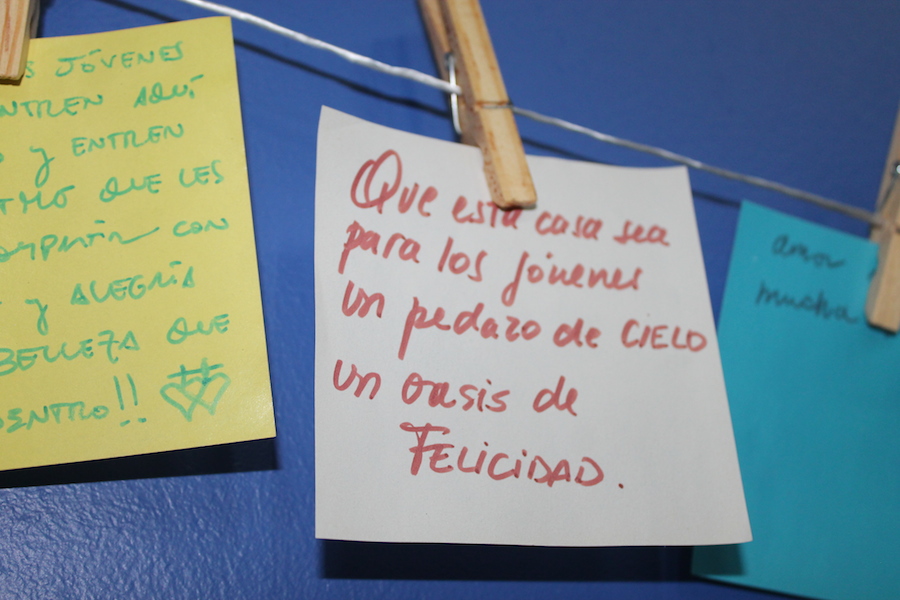 JÓVENES
ENTREN AQUÍ
Y ENTREN
QUE LES
CON
Y ALEGRÍA
BELLEZA QUE
DENTRO!!
Que esta casa sea
para los jóvenes
un pedazo de CIELO
un oasis de
FELICIDAD.
amor
mucha